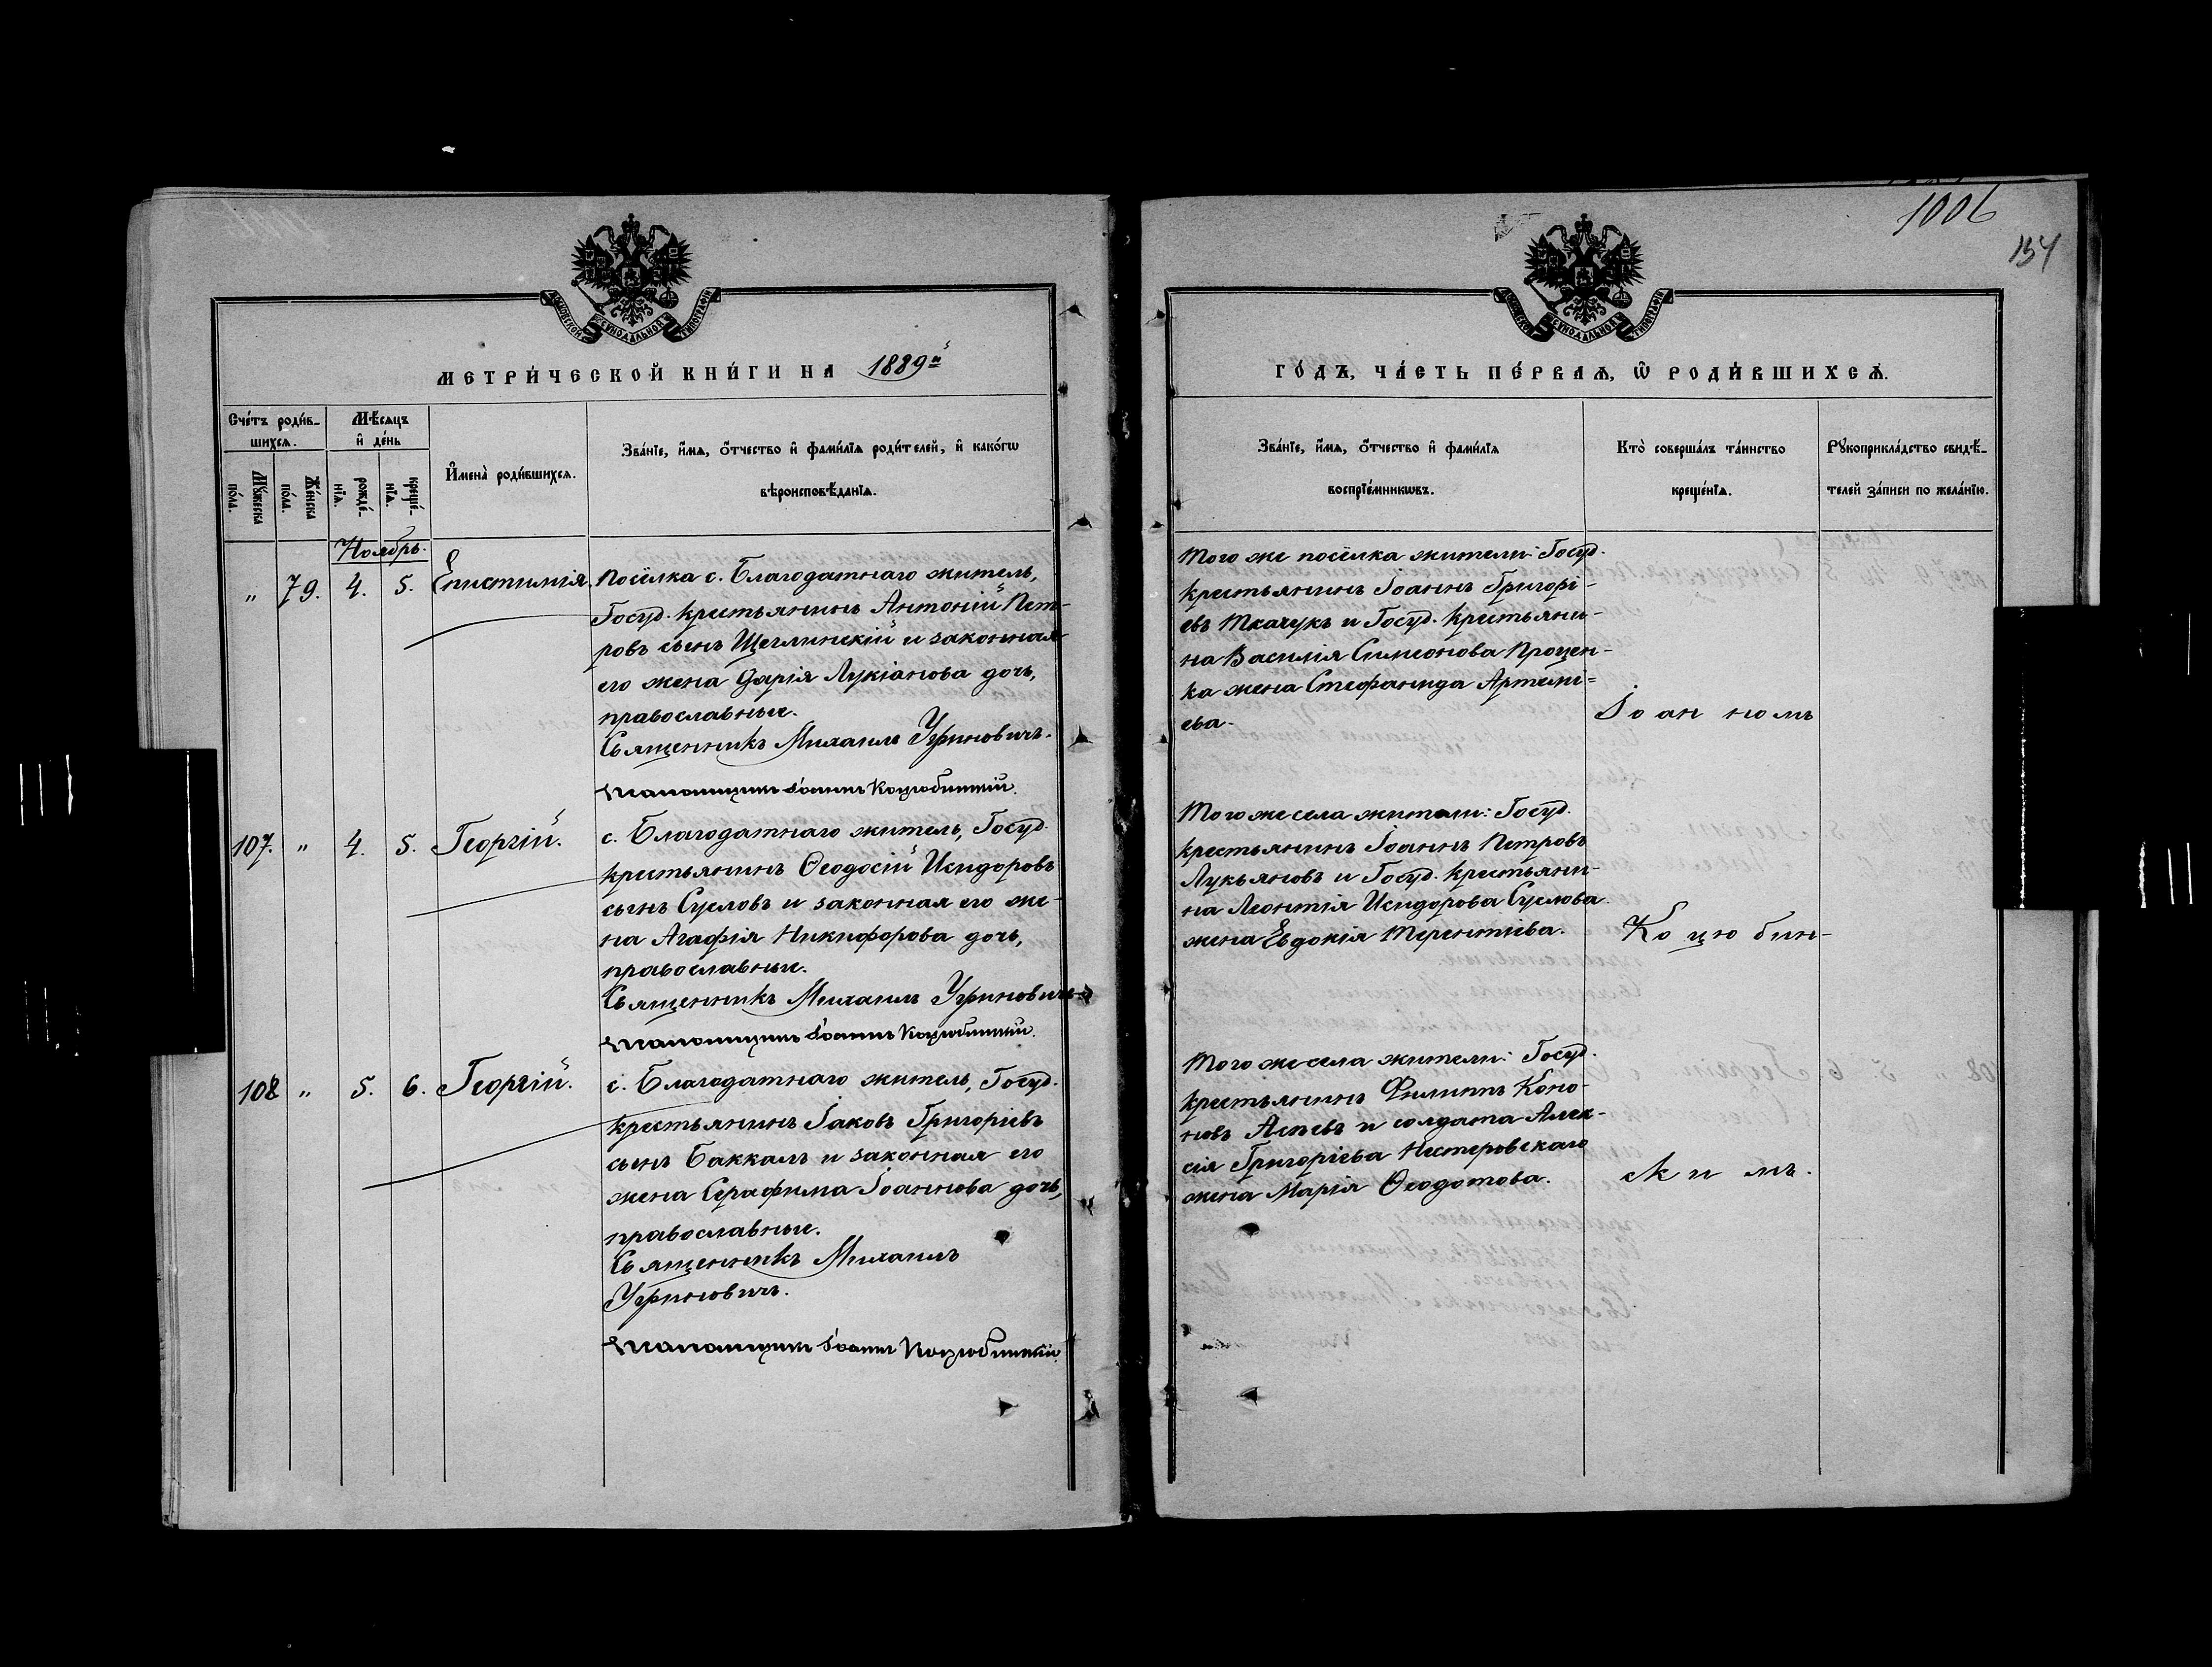 1006
154
МОСКОВСКОЙ СѴНОДАЛЬНОЙ ТИПОГРАФІИ
МОСКОВСКОЙ СѴНОДАЛЬНОЙ ТИПОГРАФІИ
МЕТРИ́ЧЕСКОЙ КНИ́ГИ НА 1889й
ГО́ДЪ, ЧА́СТЬ ПЕ́РВАѦ, Ѽ РОДИ́ВШИХСѦ.
Сче́тъ роди́в-
шихсѧ.
Мѹ́жеска
по́ла.
Же́нска
по́ла.
Мѣ́сѧцъ
и҆ де́нь
рожде́-
нїѧ.
креще́-
нїѧ.
И҆мена̀ роди́вшихсѧ.
Зва́нїе, и҆́мѧ, о҆́тчество и҆ фами́лїѧ роди́телей, и҆ како́гѡ
вѣроисповѣ́данїѧ.
Зва́нїе, и҆́мѧ, о҆́тчество и҆ фами́лїѧ
воспрїе́мникѡвъ.
Кто̀ соверша́лъ та́инство
креще́нїѧ.
Рꙋкоприкла́дство свидѣ́-
телей за́писи по жела́нїю.
Ноябрь.
" 79. 4. 5. Епистимія.
Посёлка с. Благодатнаго житель,
Госуд. крестьянинъ Антоній Пет-
ровъ сынъ Щеглинскій и законная
его жена Дарія Лукіанова дочь,
православные.
Священникъ Михаилъ Угриновичъ.
Псаломщикъ Іоаннъ Коцюбинскій.
Того же посёлка жители: Госуд.
крестьянинъ Іоаннъ Григорі-
евъ Ткачукъ и Госуд. крестьяни-
на Василія Симеонова Процен-
ка жена Стефанида Артемі-
ева.
Іоанномъ
107. " 4. 5. Георгій.
с. Благодатнаго житель, Госуд.
крестьянинъ Ѳеодосій Исидоровъ
сынъ Сусловъ и законная его же-
на Агафія Никифорова дочь,
православные.
Священникъ Михаилъ Угриновичъ
Псаломщикъ Іоаннъ Коцюбинскій.
Того же села жители: Госуд.
крестьянинъ Іоаннъ Петровъ
Лукьяновъ и Госуд. крестьяни-
на Леонтія Исидорова Суслова
жена Евдокія Терентіева.
Коцюбин-
108 " 5. 6. Георгій.
с. Благодатнаго житель, Госуд.
крестьянинъ Іаковъ Григоріевъ
сынъ Баккалъ и законная его
жена Серафима Іоаннова дочь,
православные.
Священникъ Михаилъ
Угриновичъ.
Псаломщикъ Іоаннъ Коцюбинскій.
Того же села жители: Госуд.
крестьянинъ Филиппъ Коно-
новъ и солдата Алек-
сія Григоріева Нестеровскаго
жена Марія Ѳеодотова.